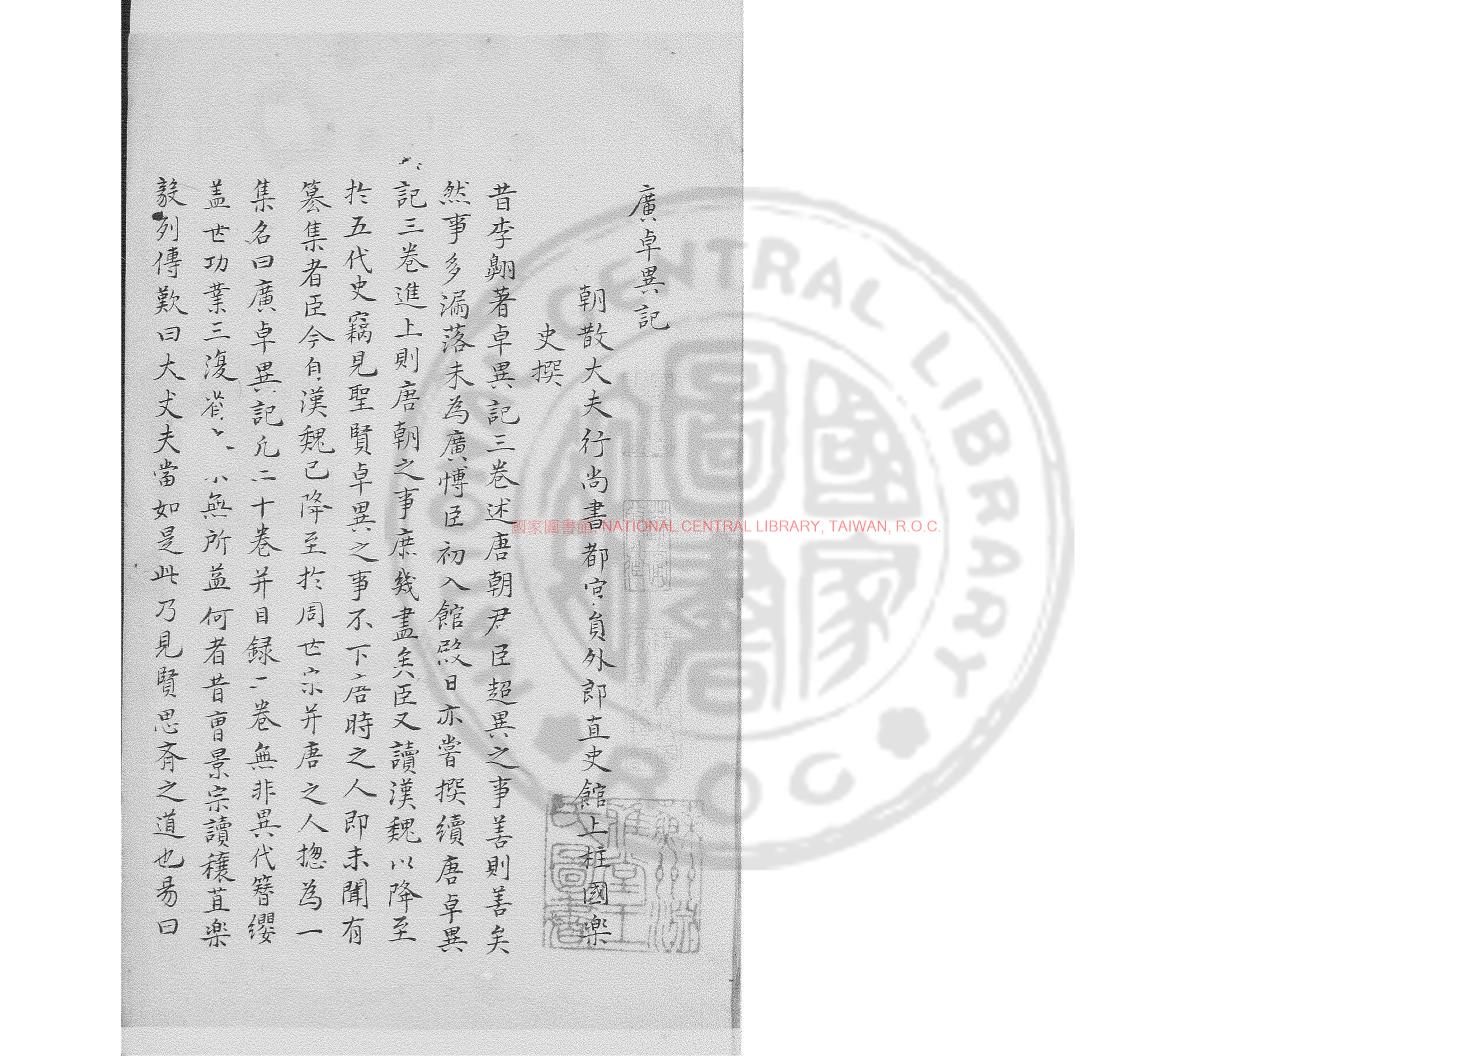 廣卓異記
朝散大夫行尚書都官員外郎直史館上柱國樂
史撰
昔李翱著卓異記三卷述唐朝君臣超異之事善則善矣
然事多漏落未為廣愽臣初入館殿日亦嘗撰續唐卓異
記三卷進上則唐朝之事庶幾盡矣臣又讀漢魏以降至
於五代史竊見聖賢卓異之事不下唐時之人即未聞有
纂集者臣今自漢魏已降至於周世宗并唐之人揔為一
集名曰廣卓異記凡二十卷并目録一卷無非異代簪纓
盖世功業三復 無所益何者昔曹景宗讀穰苴樂
毅列傳歎曰大丈夫當如是此乃見賢思齊之道也易曰
國家圖書館, NATIONAL CENTRAL LIBRARY, TAIWAN, R.O.C.
NATIONAL CENTRAL LIBRARY
ROC
國家圖書館